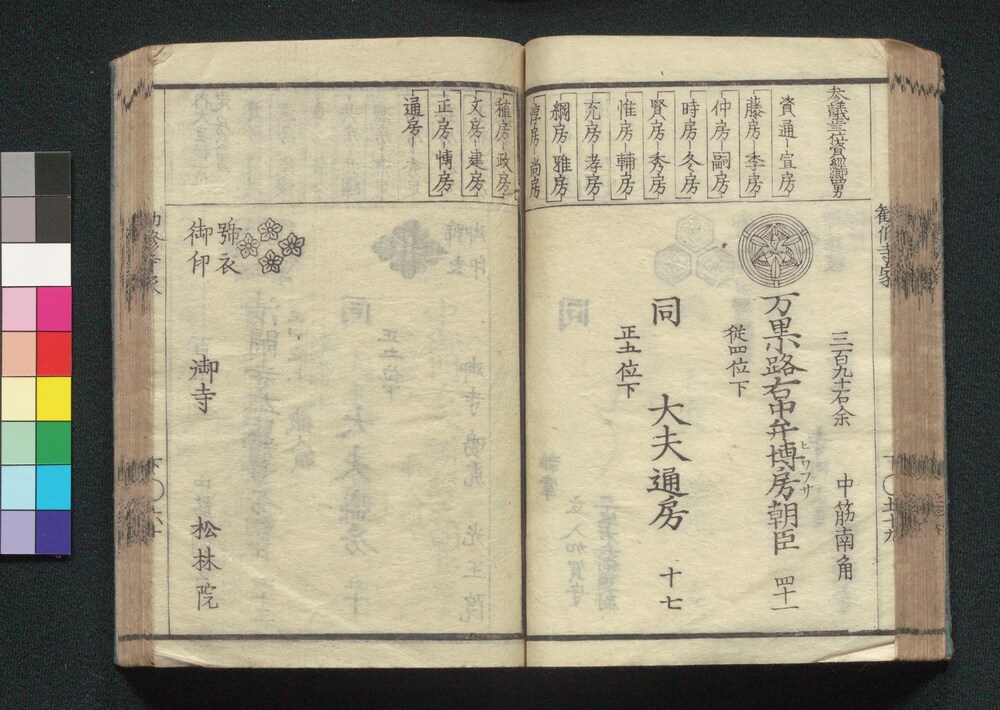 勧修寺家
参議正三位資経卿男
資通 宣房
藤房 季房
仲房 嗣房
時房 冬房
賢房 秀房
惟房 輔房
充房 孝房
綱房 雅房
淳房 尚房
稙房 政房
文房 建房
正房 博房
通房
三百九十石余 中筋南角
万里小路右中弁博房朝臣 四十一
ヒロフサ
従四位下
同 大夫通房 十七
正五位下
號衣
御印
御寺 松林院
下〇五十九
勧修寺家
下〇六十